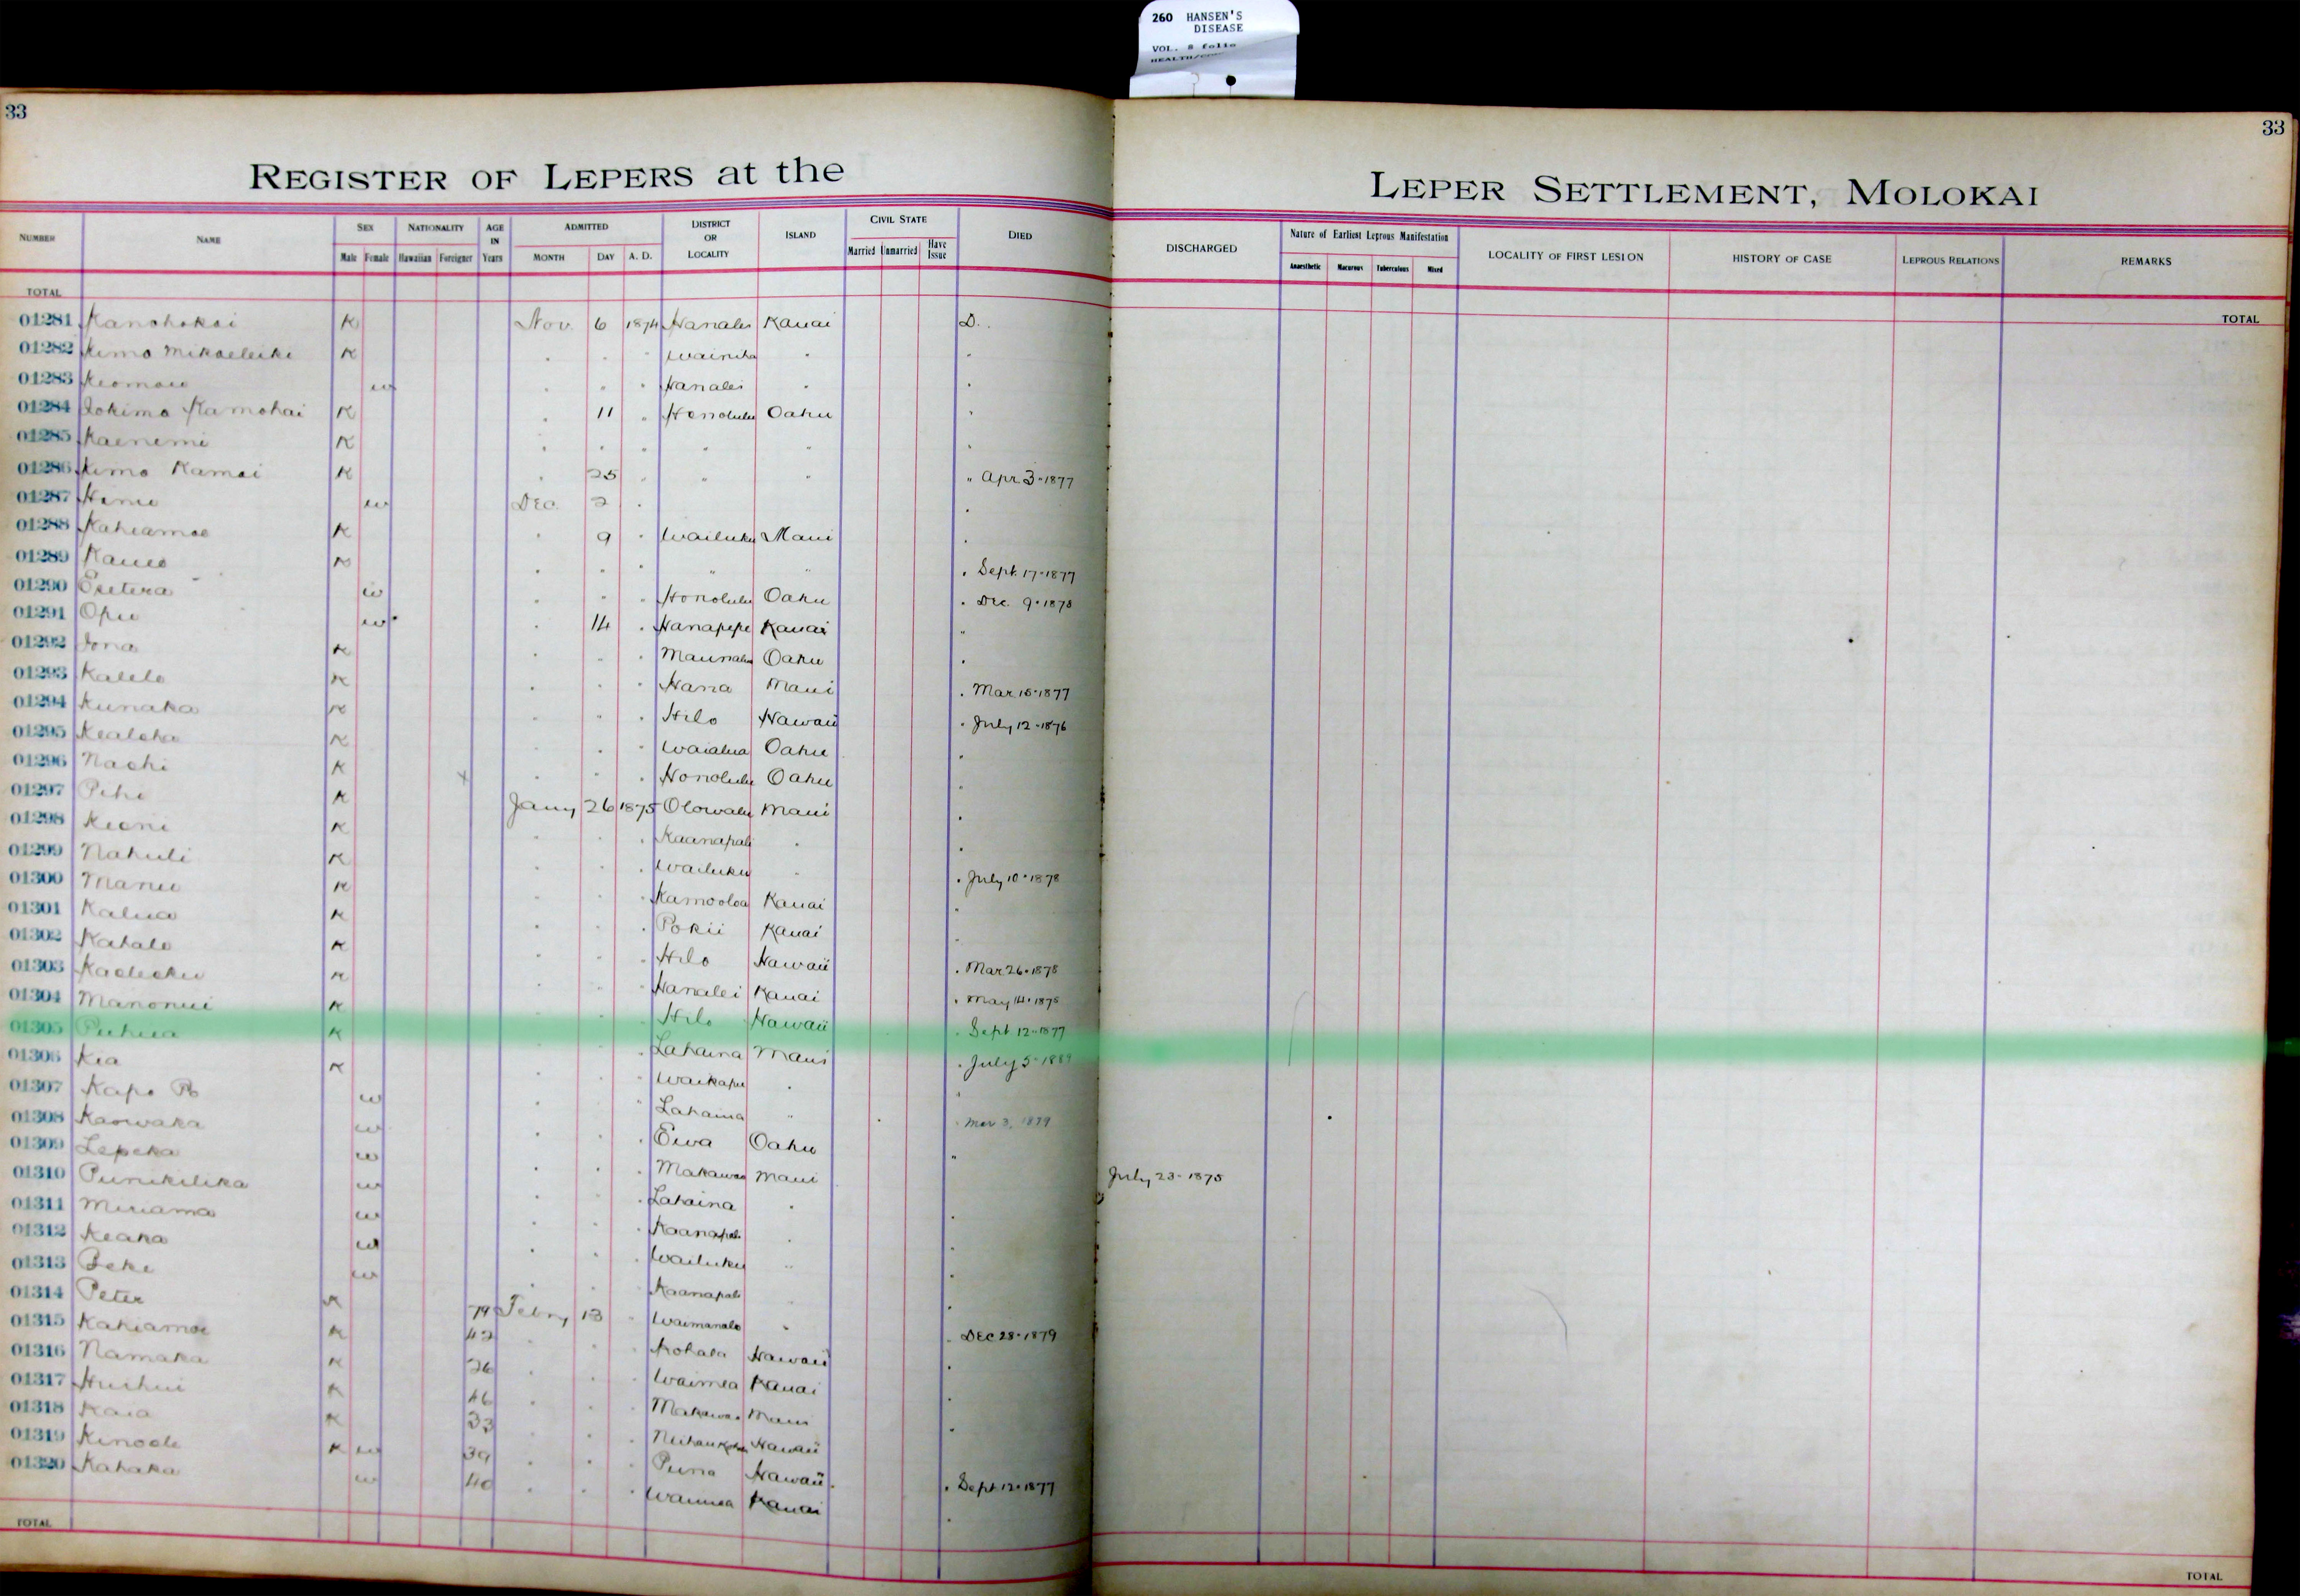 260 HANSEN'S
DISEASE
VOL. 8 folio
33
33
REGISTER OF LEPERS at the LEPER SETTLEMENT, MOLOKAI
NUMBER NAME SEX Male Female NATIONALITY Hawaiian Foreigner AGE IN Years ADMITTED MONTH DAY A. D. DISTRICT OR LOCALITY ISLAND CIVIL STATE Married Unmarried Have Issue DIED DISCHARGED Nature of Earliest Leprous Manifestation Anaesthetic Macurous Tuberculous Mixed LOCALITY OF FIRST LESION HISTORY OF CASE LEPROUS RELATIONS REMARKS
TOTAL TOTAL
01281 Kanohokai K Nov. 6 1874 Hanalei Kauai D.
01282 Kimo Mikaeleike K " " " Wainiha " "
01283 Keomaie w " " " Hanalei " "
01284 Iokimo Kamohai K " 11 " Honolulu Oahu "
01285 Kaenemi K " " " " " "
01286 Kimo Kamai K " 25 " " " " Apr 3-1877
01287 w Dec. 2 " "
01288 Kahiamoe K " 9 " Wailuku Maui "
01289 Kaueo K " " " " " " Sept. 17-1877
01290 w " " " Honolulu Oahu " Dec. 9-1878
01291 Opu w " 14 " Hanapepe Kauai "
01292 Iona K " " " Maunalua Oahu "
01293 Kalelo K " " " Hana Maui " Mar 15-1877
01294 Kunaka K " " " Hilo Hawaii " July 12-1876
01295 Kealoha K " " " Waialua Oahu "
01296 Naohi K x " " " Honolulu Oahu "
01297 Pihi K Jany 26 1875 Olowalu Maui "
01298 Keoni K " " " Kaanapali " "
01299 Nahuli K " " " Wailuku " " July 10-1878
01300 Manu K " " " Kamooloa Kauai "
01301 Kalua K " " " Pokii Kauai "
01302 Kahalo K " " " Hilo Hawaii " Mar 26-1878
01303 K " " " Hanalei Kauai " May 14-1875
01304 Manonui K " " " Hilo Hawaii " Sept 12-1877
01305 Puhua K " " " Lahaina Maui " July 5-1889
01306 Kia K " " " Waikapu " "
01307 Kapo w " " " Lahaina " " Mar 3, 1879
01308 Kaowaka w " " " Ewa Oahu "
01309 Lepeka w " " " Makawao Maui July 23-1875
01310 Punikilika w " " " Lahaina " "
01311 Miriama w " " " Kaanapali " "
01312 Keaka w " " " Wailuku " "
01313 Beke w " " " Kaanapali " "
01314 Peter K 79 Febry 13 " Waimanalo " " Dec 28-1879
01315 Kahiamoe K 42 " " " Kohala Hawaii "
01316 Namaka K 26 " " " Waimea Kauai "
01317 Huihui K 46 " " " Makawao Maui "
01318 Kaia K 33 " " " Hawaii
01319 Kinoole K w 39 " " " Puna Hawaii " Sept 12-1877
01320 Kahaka w 40 " " " Waimea Kauai "
TOTAL TOTAL